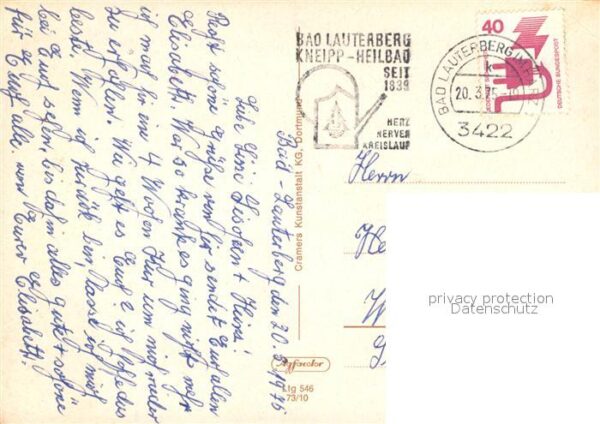 Bad-Lauterberg den 20.3.1975
Liebe Luise Lisabeth + Heinz!
Recht schöne Grüße von hier sendet Euch allen
Elisabeth. War so krank es ging nicht mehr
ist mach hier eine 4 Wochen Kur um mich wieder
zu erhollen. Wie geht es Euch? ich hoffe das
beste. Wenn ich zurück bin, lasse ich mich
bei Euch sehen. bis dahin alles gute + schöne
für Euch alle. von Eurer
Elisabeth.
Cramers Kunstanstalt KG, Dortmund
Agfacolor
Llg 546
73/10
BAD LAUTERBERG
KNEIPP-HEILBAD
SEIT
1839
HERZ
NERVEN
KREISLAUF
BAD LAUTERBERG
20.3.75
3422
40
DEUTSCHE BUNDESPOST
Herrn
privacy protection
Datenschutz